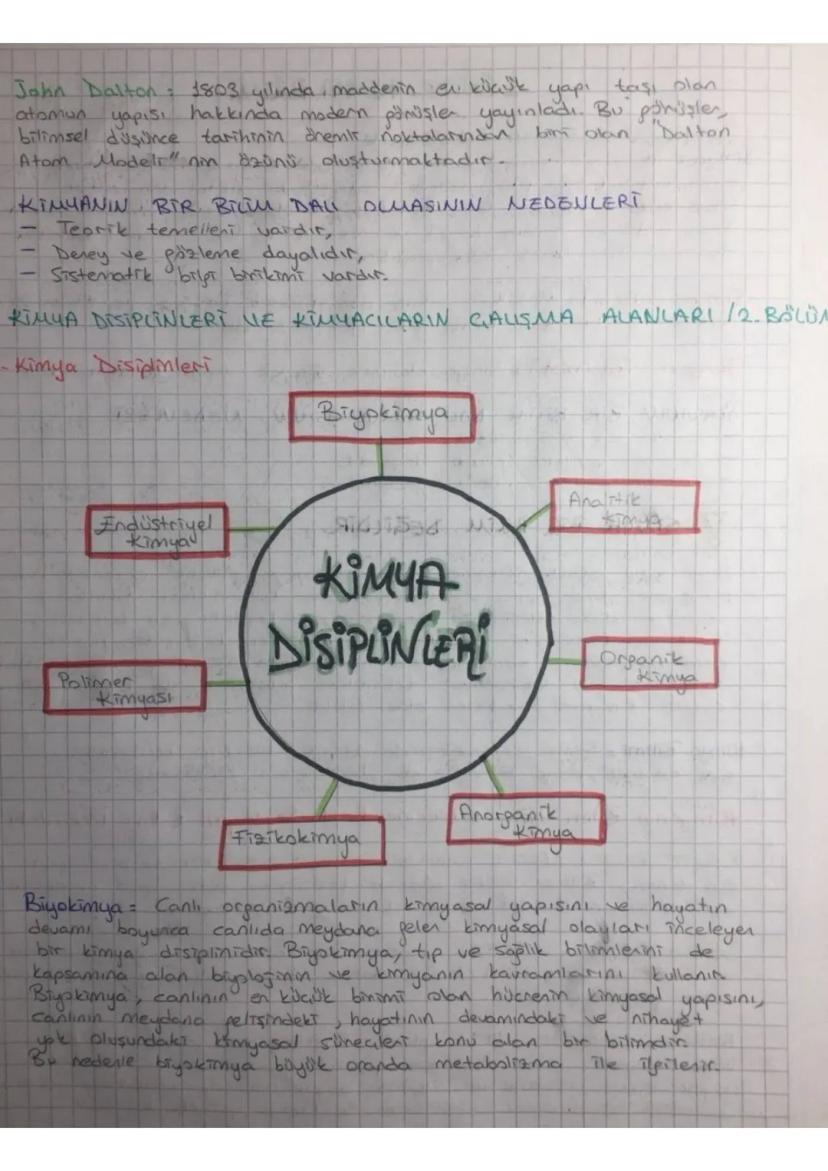 John Dalton : 1803 yılında maddenin en küçük yapı taşı olan
atomun yapısı hakkında modern görüşler yayınladı. Bu görüşler,
bilimsel düşünce tarihinin önemli noktalarından biri olan "Dalton
Atom Modeli" nin özünü oluşturmaktadır.
KİMYANIN BİR BİLİM DALI OLMASININ NEDENLERİ
- Teorik temelleri vardır,
- Deney ve gözleme dayalıdır,
- Sistematik bilgi birikimi vardır.
KİMYA DİSİPLİNLERİ VE KİMYACILARIN ÇALIŞMA ALANLARI /2. BÖLÜM
- Kimya Disiplinleri
Biyokimya
Analitik
Kimya
Endüstriyel
Kimya
KİMYA
DİSİPLİNLERİ
Organik
Kimya
Polimer
Kimyası
Anorganik
Kimya
Fizikokimya
Biyokimya = Canlı organizmaların kimyasal yapısını ve hayatın
devamı boyunca canlıda meydana gelen kimyasal olayları inceleyen
bir kimya disiplinidir. Biyokimya, tıp ve sağlık bilimlerini de
kapsamına alan biyolojinin ve kimyanın kavramlarını kullanır.
Biyokimya, canlının en küçük birimi olan hücrenin kimyasal yapısını,
canlının meydana gelişindeki, hayatının devamındaki ve nihayet
yok oluşundaki kimyasal süreçleri konu alan bir bilimdir.
Bu nedenle biyokimya büyük oranda metabolizma ile ilgilenir.